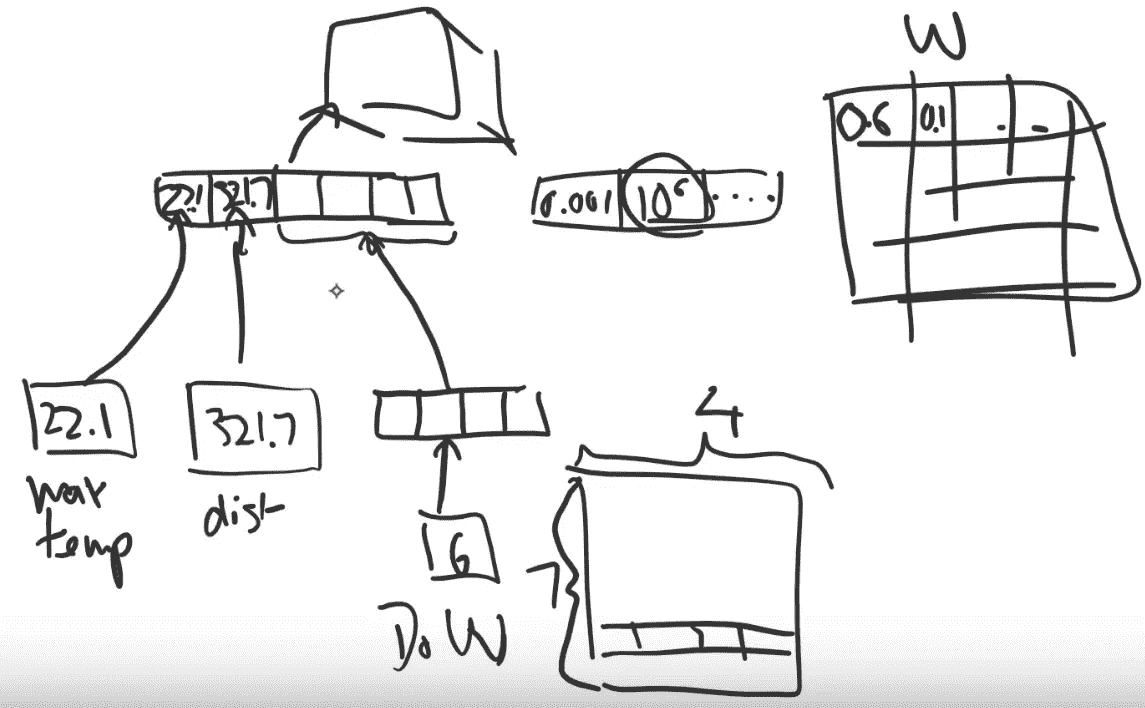 W
0.6 0.1 . -
22.1 321.7
0.001 10⁶ ....
22.1
max
temp
321.7
dist
6
DoW
4
7